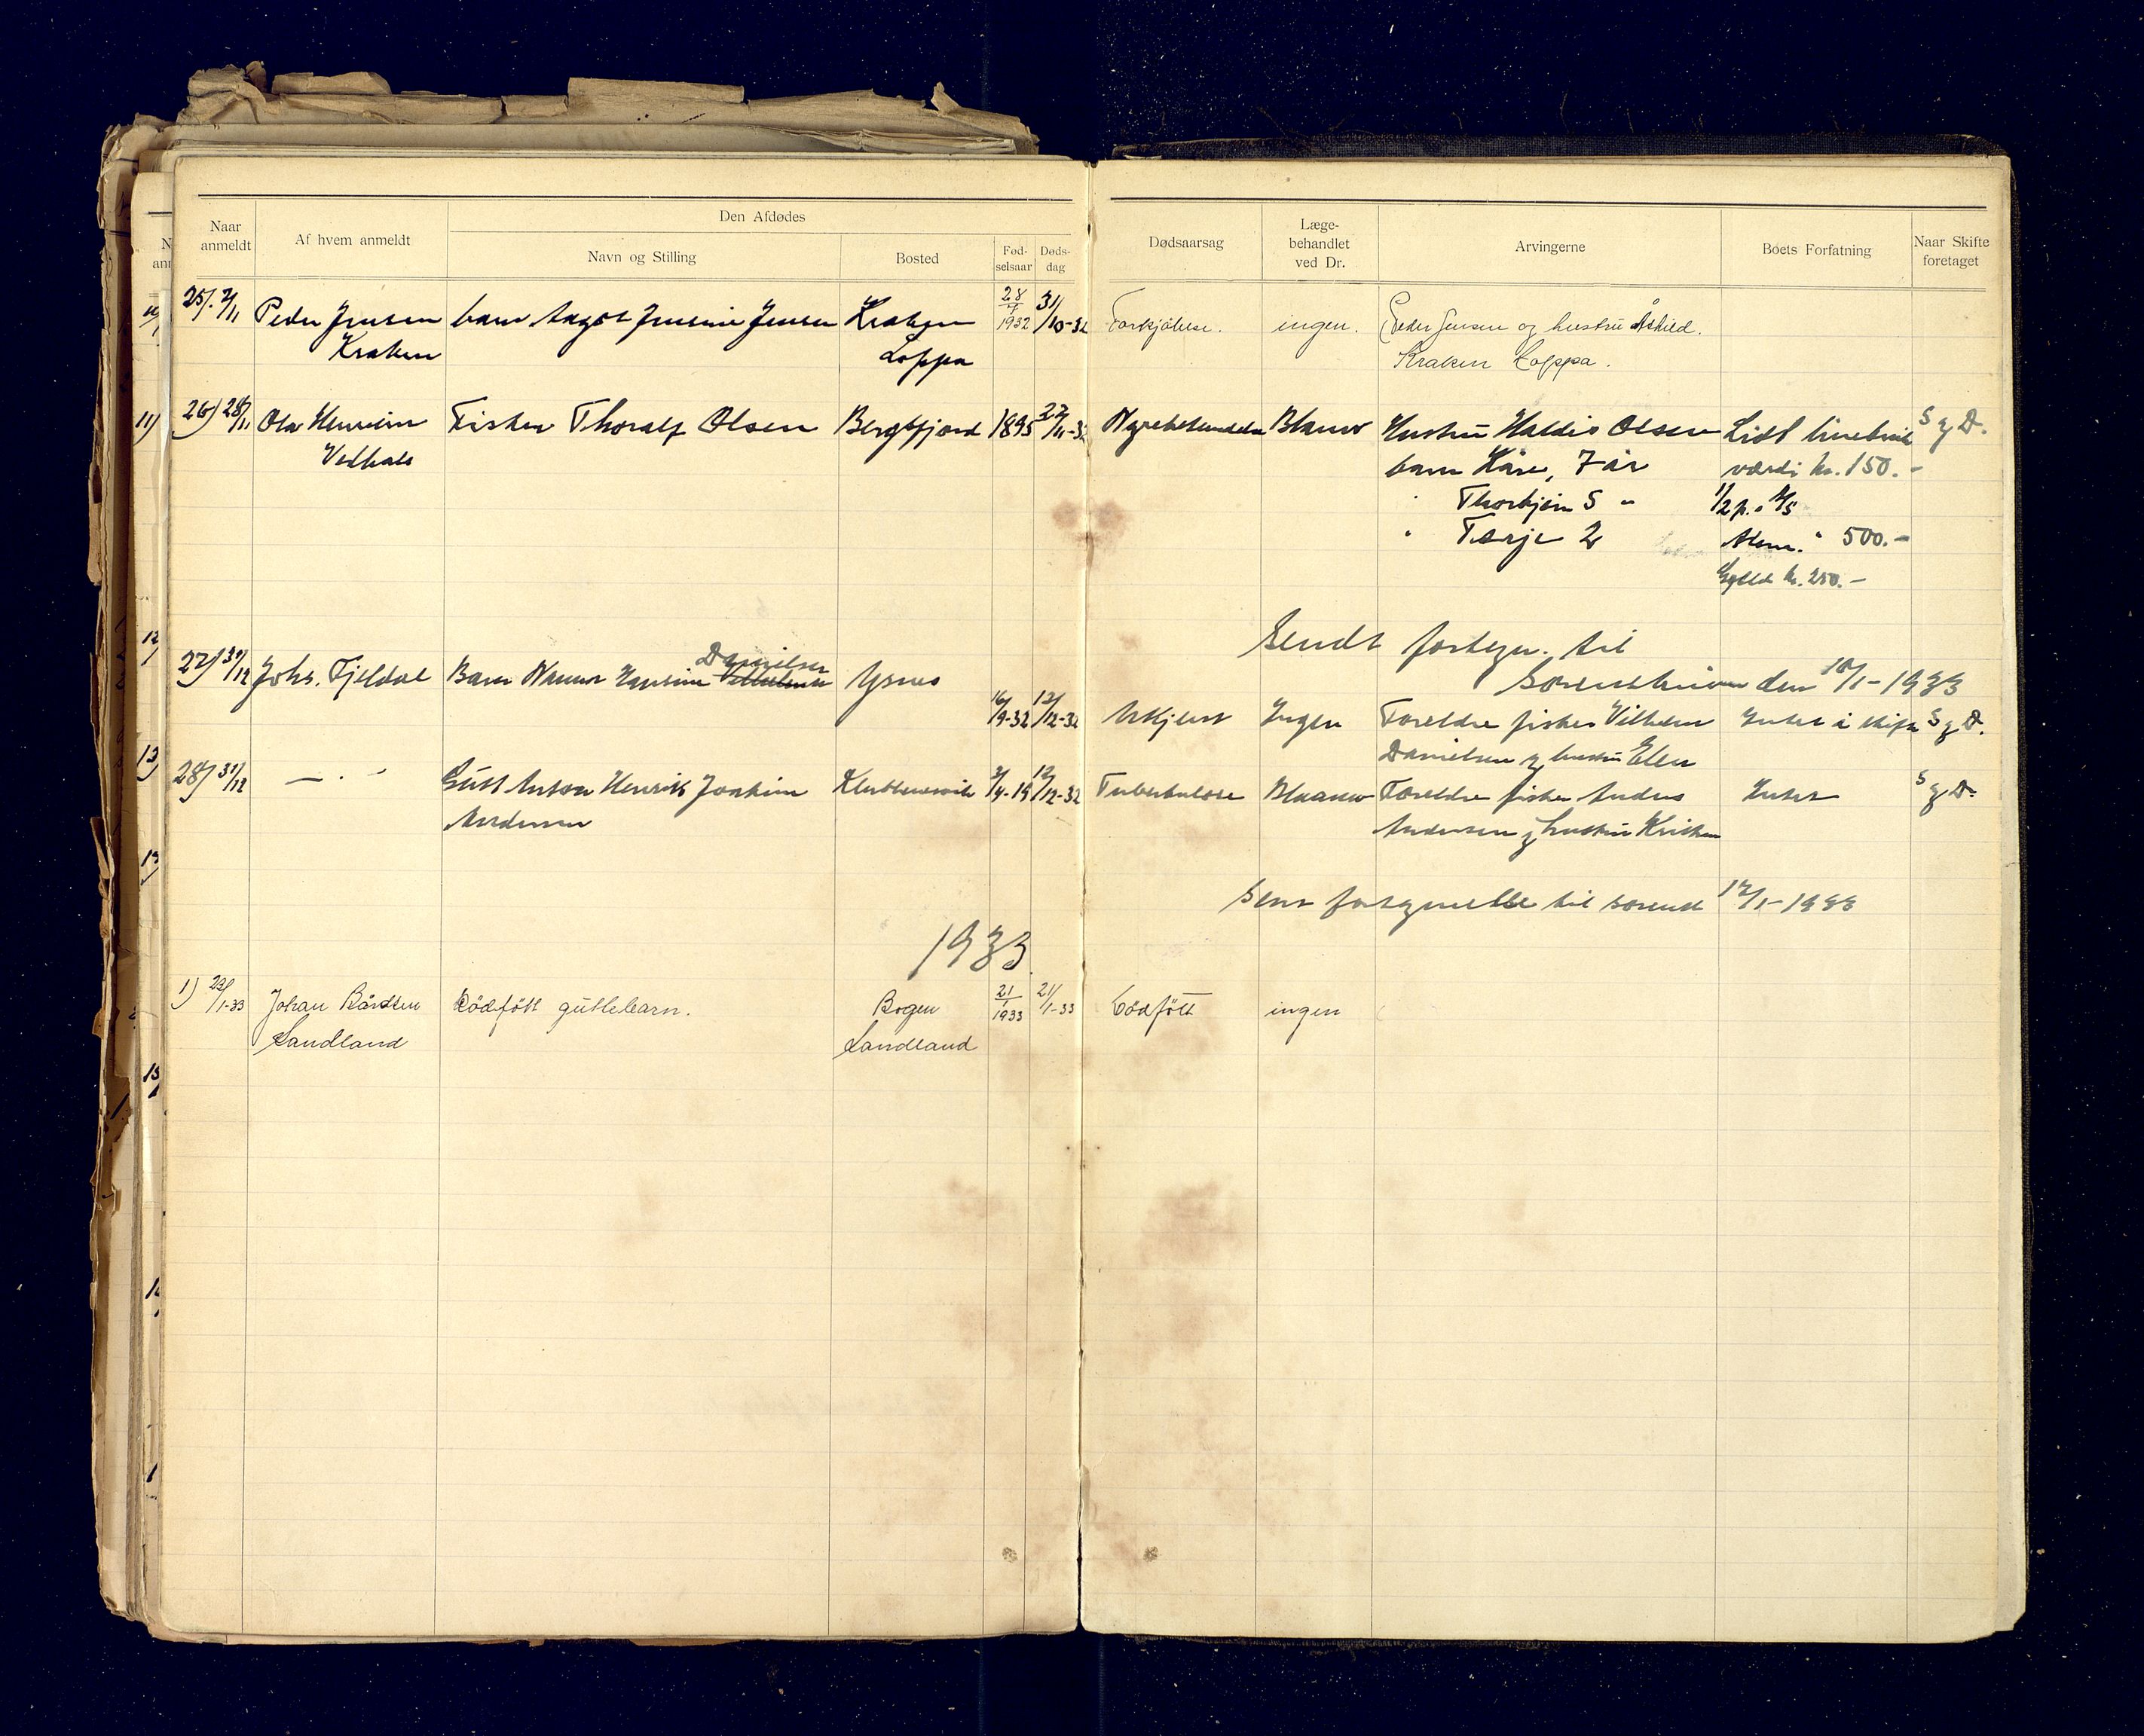 Naar anmeldt
Af hvem anmeldt
Den Afdødes
Navn og Stilling
Bosted
Fød-selsaar
Døds-dag
Dødsaarsag
Læge-behandlet ved Dr.
Arvingerne
Boets Forfatning
Naar Skifte foretaget
25). 2/11 Peder Jensen barn Aagot Jensine Jensen Kraken 28/7 1932 31/10-32 Forkjölelse. ingen. Peder Jensen og hustru Åshild.
Kraken Loppa Kraken Loppa.
26) 28/11 Ola Henriksen Fisker Thoralf Olsen Bergsfjord 1895 22/11-32 Nyrebetendelse Blaauw Hustru Haldis Olsen Lidt
barn Kåre, 7 år værdi kr. 150.-
" Thorbjörn 5 " 1/2 p. i
" Terje 2 " 500.-
Gjeld kr. 250.-
Sendt fortegn. til
Sorenskriveren den 10/1-1933
27) 31/12 Johs. Fjeldal Barn Danielsen
16/9-32 12/12-32 Ukjent Ingen Foreldre fisker Vilhelm Intet å skifte S g D.
Danielsen og hustru Elen
28) 31/12 — " — Gutt Anton Henrik Joakim 12/12-32 Tuberkulose Blaauw Foreldre fisker Anders Intet S g D.
Andersen Andersen og hustru
Sent fortegnelse til sorensk 12/1-1933
1933.
1) 23/1-33 Johan Bårdsen Dödfött guttebarn. Bogen 21/1 1933 21/1-33 Dödfött ingen
Sandland Sandland